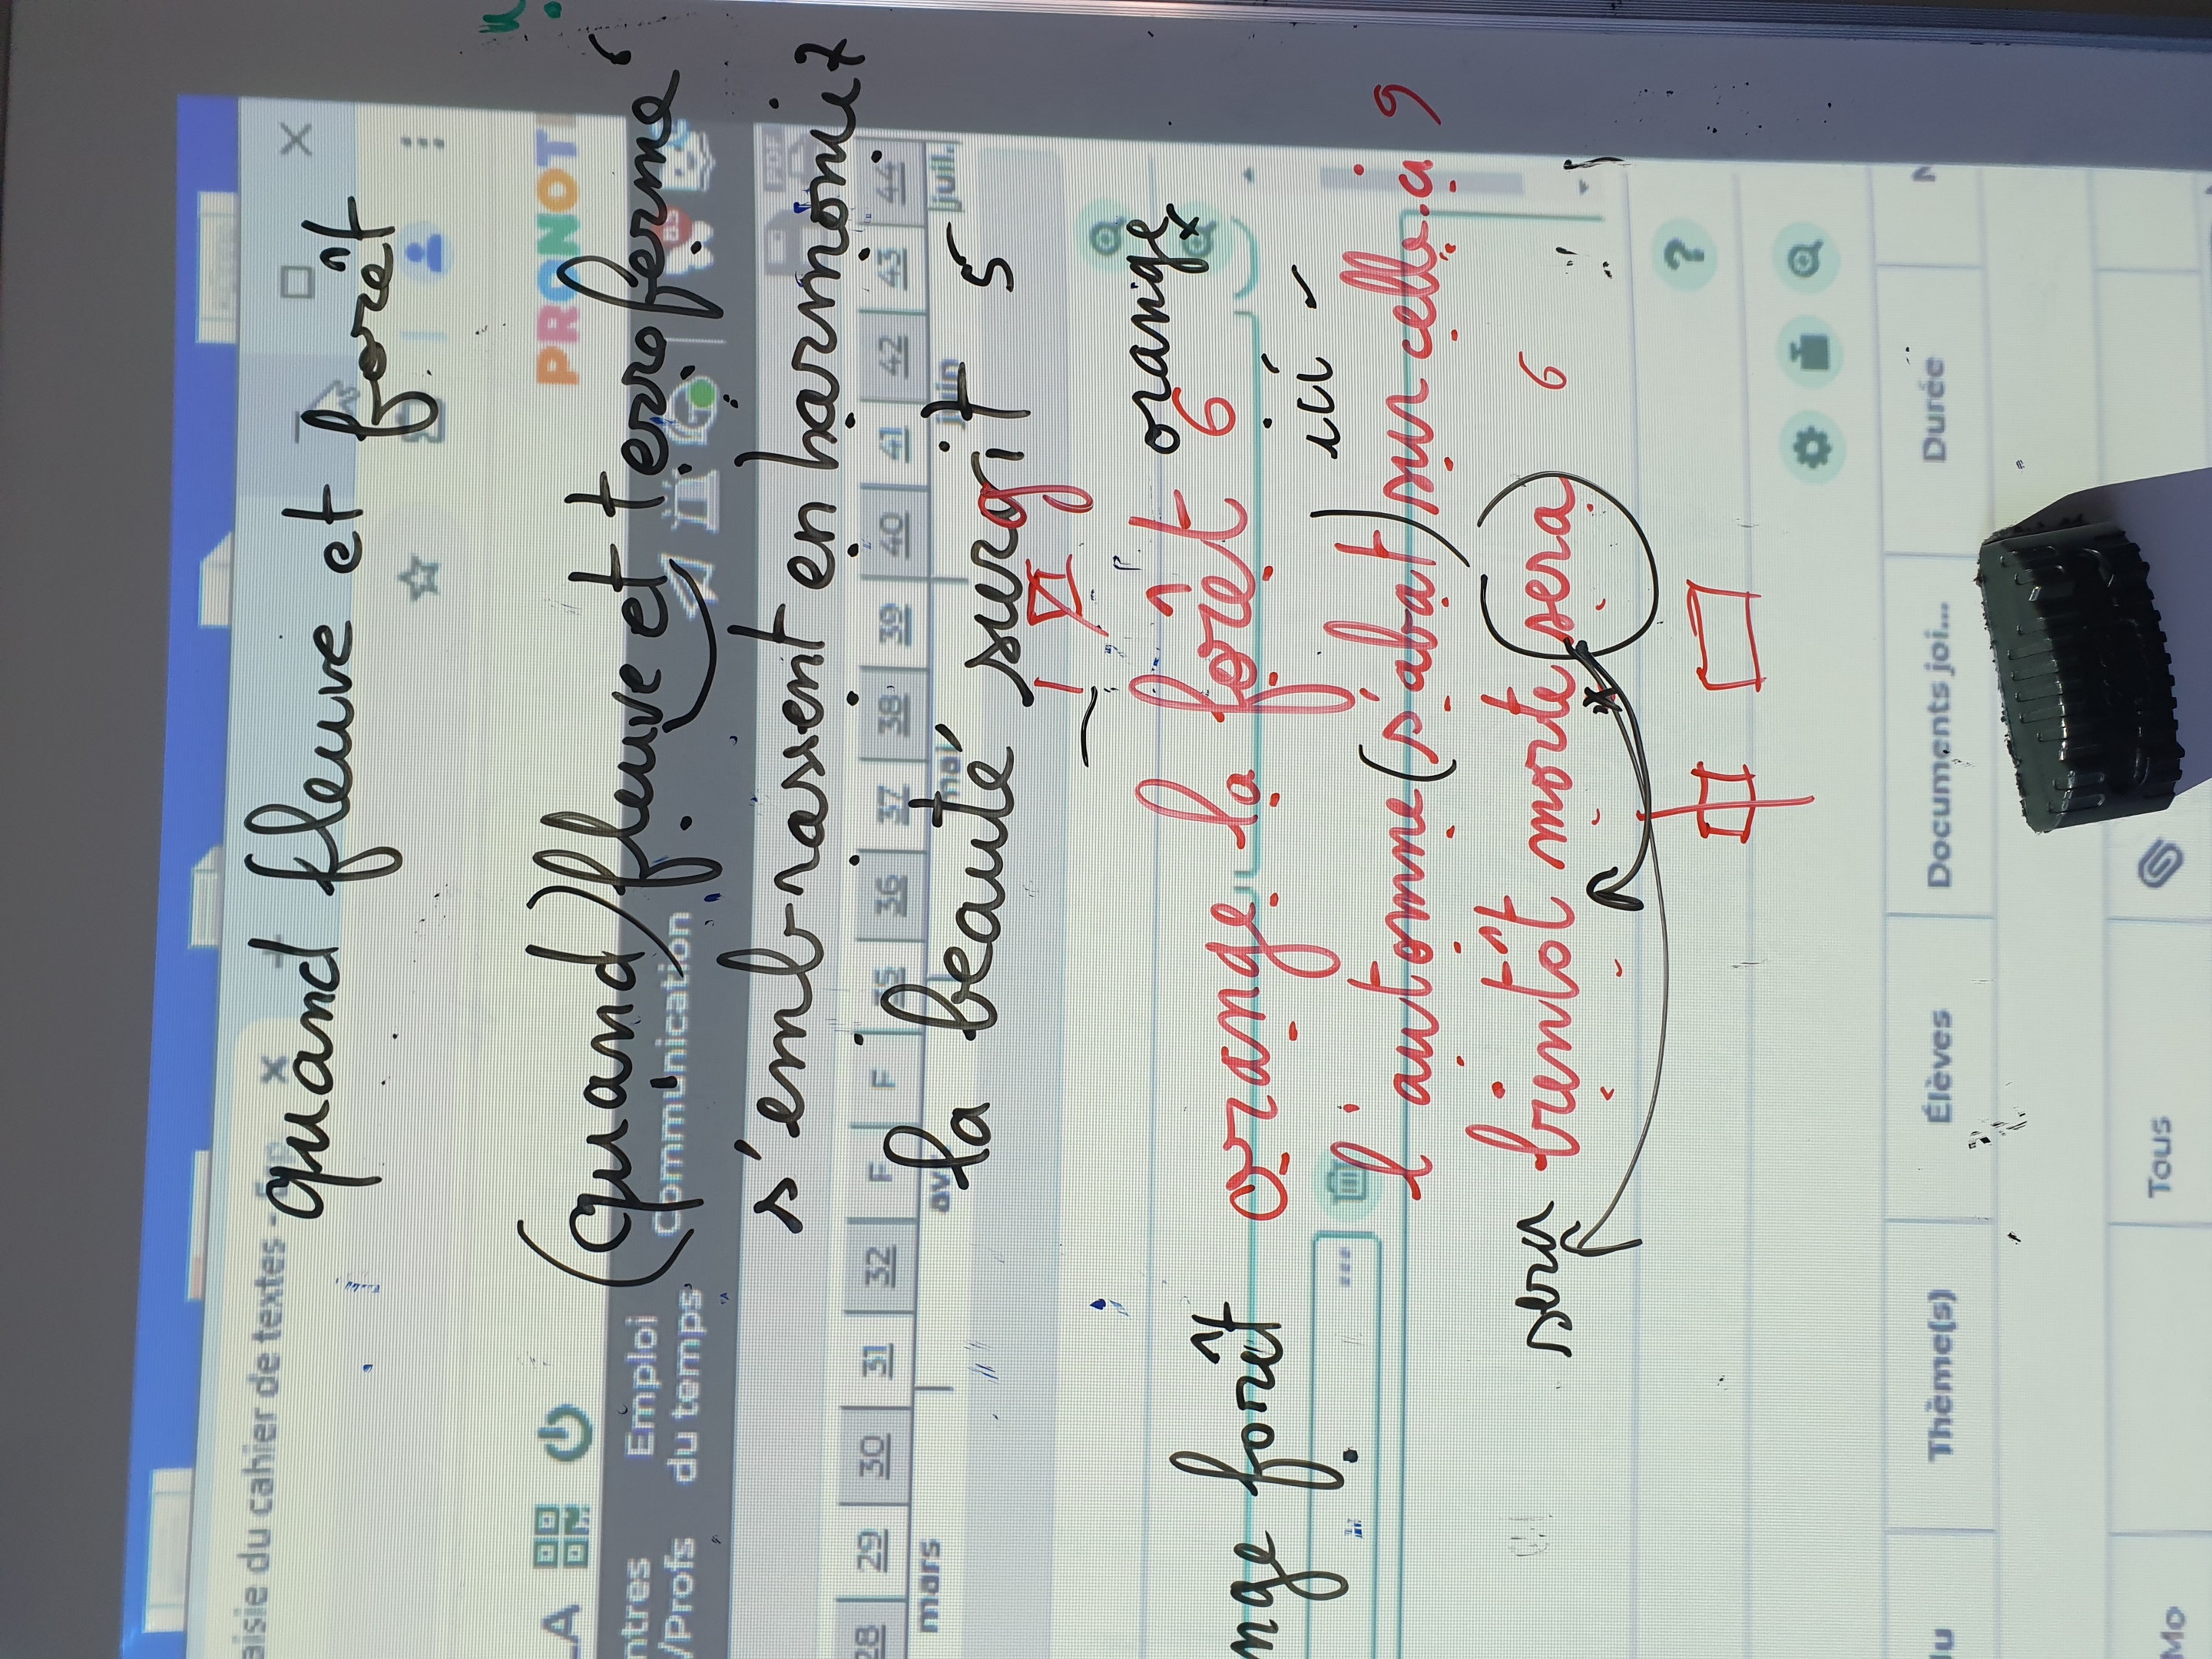 aisie du cahier de textes - Esp
quand fleuve et forêt
PRONOT
(quand) fleuve et terre ferme
ntres
/Profs
Emploi
du temps
Communication
s'embrassent en harmonie 7
28 29 30 31 32 F F 35 36 37 38 39 40 41 42 43 44
mars
mai
juin
juil.
la beauté surgit 5
orange
nge forêt
orange la forêt 6
ici
l'automne (s'abat) sur celle-ci 9
sera
bientôt morte sera 6
?
Thème(s)
Élèves
Documents joi...
Durée
Tous